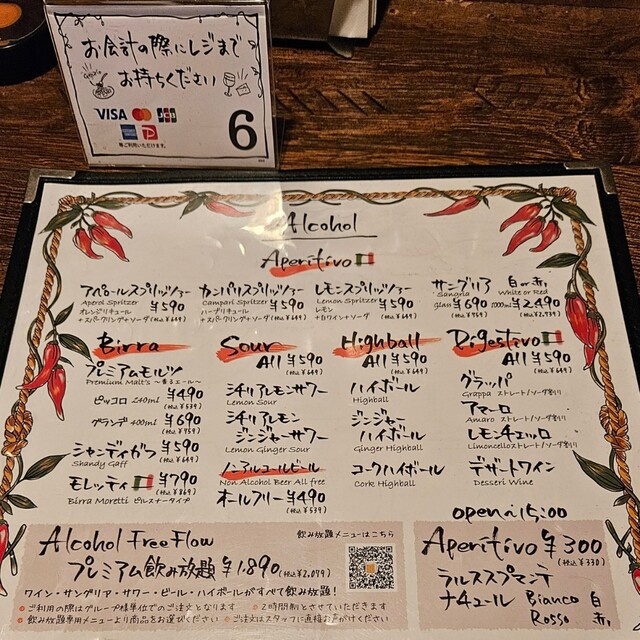 お会計の際にレジまで
お持ちください
VISA JCB
等ご利用いただけます。
6
Alcohol
Aperitivo
アペロールスプリッツァー
Aperol Spritzer
オレンジリキュール ¥590
+スパークリング+ソーダ (税込¥649)
カンパリスプリッツァー
Campari Spritzer
ハーブリキュール ¥590
+スパークリング+ソーダ (税込¥649)
レモンスプリッツァー
Lemon Spritzer
レモン ¥590
+白ワイン+ソーダ (税込¥649)
サングリア 白or赤
Sangria White or Red
glass ¥690 1000ml ¥2,490
(税込¥759) (税込¥2,739)
Birra
プレミアムモルツ
Premium Malt's ～香るエール～
ピッコロ 240ml ¥490
(税込¥539)
グランデ 400ml ¥690
(税込¥759)
シャンディガフ ¥590
Shandy Gaff (税込¥649)
モレッティ ¥790
Birra Moretti ピルスナータイプ (税込¥869)
Sour
All ¥590
(税込¥649)
シチリアレモンサワー
Lemon Sour
シチリアレモン
ジンジャーサワー
Lemon Ginger Sour
ノンアルコールビール
Non Alcohol Beer All free
オールフリー ¥490
(税込¥539)
Highball
All ¥590
(税込¥649)
ハイボール
Highball
ジンジャー
ハイボール
Ginger Highball
コークハイボール
Cork Highball
Digestivo
All ¥590
(税込¥649)
グラッパ
Grappa ストレート/ソーダ割り
アマーロ
Amaro ストレート/ソーダ割り
レモンチェッロ
Limoncello ストレート/ソーダ割り
デザートワイン
Dessert Wine
Alcohol Free Flow
飲み放題メニューはこちら
プレミアム飲み放題 ¥1,890 (税込¥2,079)
ワイン・サングリア・サワー・ビール・ハイボールがすべて飲み放題!
ご利用の際はグループ様単位でのご注文となります 2時間制とさせていただきます
飲み放題専用メニューより商品をお選びください ご注文はスタッフに直接お声がけください
open~15:00
Aperitivo ¥300
(税込¥330)
ラルススプマンテ
ナチュール Bianco 白
Rosso 赤